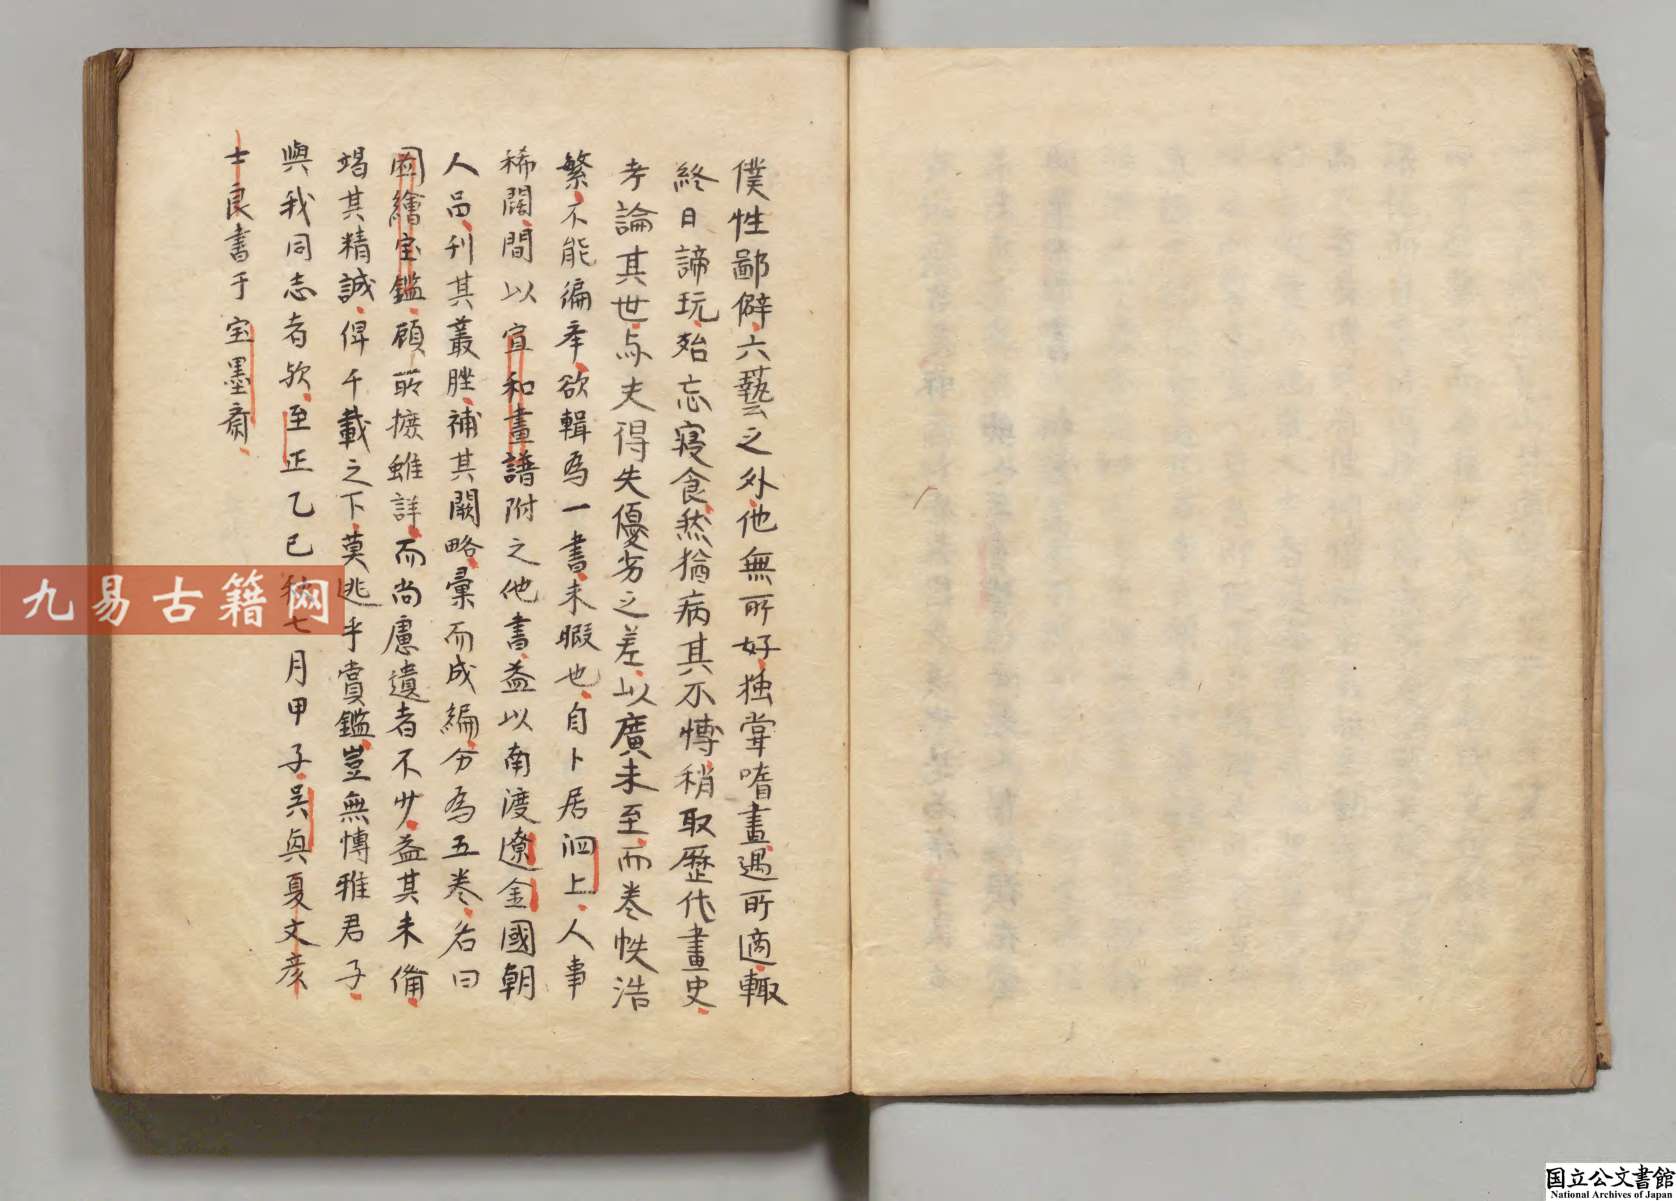 僕性鄙僻六藝之外他無所好独甞嗜畫遇所適輙
終日諦玩殆忘寝食然猶病其不慱稍取歷代畫史
考論其世与夫得失優劣之差以廣未至而巻帙浩
繁不能徧本欲輯為一書未暇也自卜居泗上人事
稀濶間以宣和畫譜附之他書益以南渡遼金國朝
人品刊其叢脞補其闕略彙而成編分為五巻名曰
圖繪宝鑑顧所摭雖詳而尚慮遺者不少益其未備
竭其精誠俾千載之下莫逃乎賞鑑豈無愽雅君子
與我同志者欤至正乙巳秋七月甲子吳興夏文彦
士良書于宝墨斎
九易古籍网
国立公文書館
National Archives of Japan